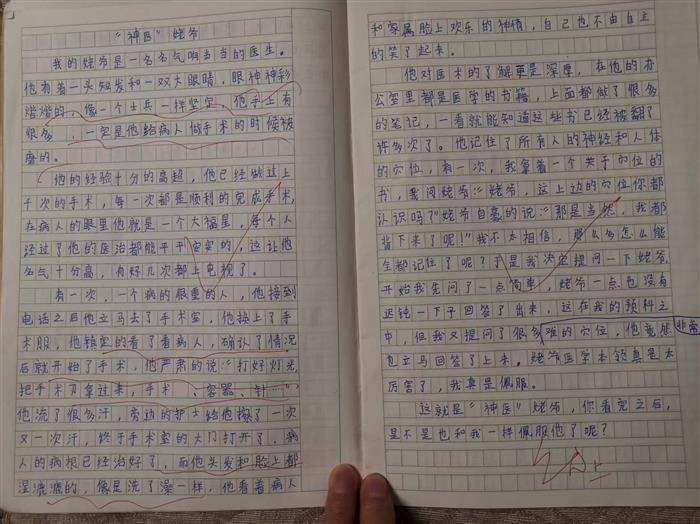 “神医”姥爷
我的姥爷是一名名气响当当的医生。
他有着一头短发和一双大眼睛，眼神神彩
熠熠的，像一个士兵一样坚定，他手上有
很多，一定是他给病人做手术的时候被
磨的。
他的经验十分的高超，他已经做过上
千次的手术，每一次都是顺利的完成手术，
在病人的眼里他就是一个大福星，每个人
经过了他的医治都能平平安安的，这让他
名气十分高，有好几次都上电视了。
有一次，一个病的很重的人，他接到
电话之后他立马去了手术室，他换上了手
术服，他镇定的看了看病人，确认了情况
后就开始了手术，他严肃的说：“打好灯光，
把手术刀拿过来，手术、容器、针……”
他流了很多汗，旁边的护士给他擦了一次
又一次汗，终于手术室的大门打开了，病
人的病根已经治好了，而他头发和脸上都
湿漉漉的，像是洗了澡一样，他看着病人
和家属脸上欢乐的神情，自己也不由自主
的笑了起来。
他对医术的了解更是深厚，在他的办
公室里都是医学的书籍，上面都做了很多
的笔记，一看就能知道这些书已经被翻了
许多次了。他记住了所有人的神经和人体
的穴位，有一次，我拿着一个关于穴位的
书，我问姥爷：“姥爷，这上边的穴位你都
认识吗？”姥爷自豪的说：“那是当然，我都
背下来了呢！”我不太相信，那么多怎么能
全都记住了呢？于是我决定提问一下姥爷，
开始我先问了一点简单，姥爷一点也没有
迟钝一下子回答了出来，这在我的预料之
中，但我又提问了很多难的穴位，他竟然
非常
也立马回答了上来。姥爷医学本领真是太
厉害了，我真是佩服。
这就是“神医”姥爷，你看完之后，
是不是也和我一样佩服他了呢？